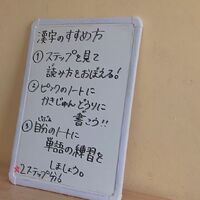 漢字のすすめ方
①ステップを見て
読み方をおぼえる!
②ピックのノートに
かきじゅんどうりに
書こう!!
③自分のノートに
単語の練習を
しましょう。
※2ステップずつ